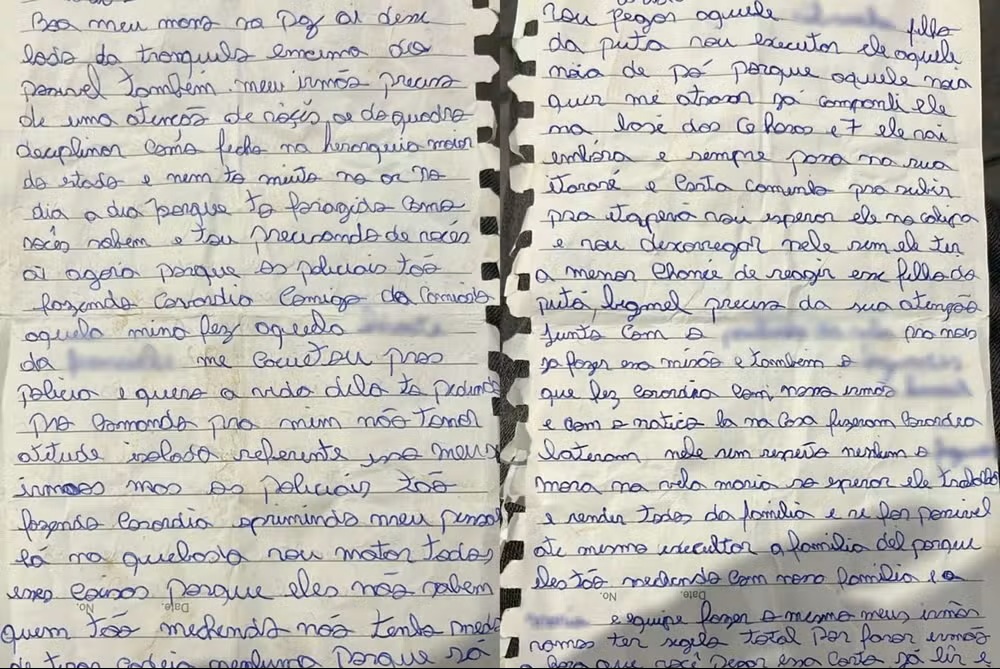 Boa meu mano na paz ai dese
lado da tranquilo emcima do
posivel também meu irmão preciso
de uma atenção de vocês ai do quadro
daciplinar como fecho na herarquia maior
do estado e nem to muito no ar no
dia a dia porque to foragido como
vocês sabem e tou precisando de vocês
ai agora porque os policiais tão
fazendo covardia comigo da
aquela mina fez aquela
da me caguetou pros
policia e quero a vida dela to pedindo
pro comando pra mim não tomar
atitude isolada referente isso meus
irmãos mas os policiais tão
fazendo covardia oprimindo meu pesoal
lá na quebrada vou matar todos
eses coisas porque eles não sabem
quem tão mechendo não tenho medo
de tirar cadeia nenhuma porque só
vou pegar aquele filho
da puta vou executar ele aquele
de pé porque aquele
quer me atrasar já ele
na dos e 7 ele vai
embora e sempre pasa na rua
itararé e corta caminho pra subir
pra itaperá vou esperar ele na
e vou descarregar nele sem ele ter
a menor chance de reagir ese filho da
puta, preciso da sua atenção
junto com o pra nois
ja fazer esa misão e também o
que fez covardia com noso irmão
e com o la na casa fizeram covardia
bateram nele sem respeito nenhum o
mora na vila maria so esperar ele
e render todos da familia e se for posivel
até mesmo executar a familia del porque
eles tão mechendo com nosa familia e o
Date. No. Date. No.
e equipe fazer o mesmo meus irmão
vamos ter total por favor irmão
a hora que você pegar esa carta só lir e